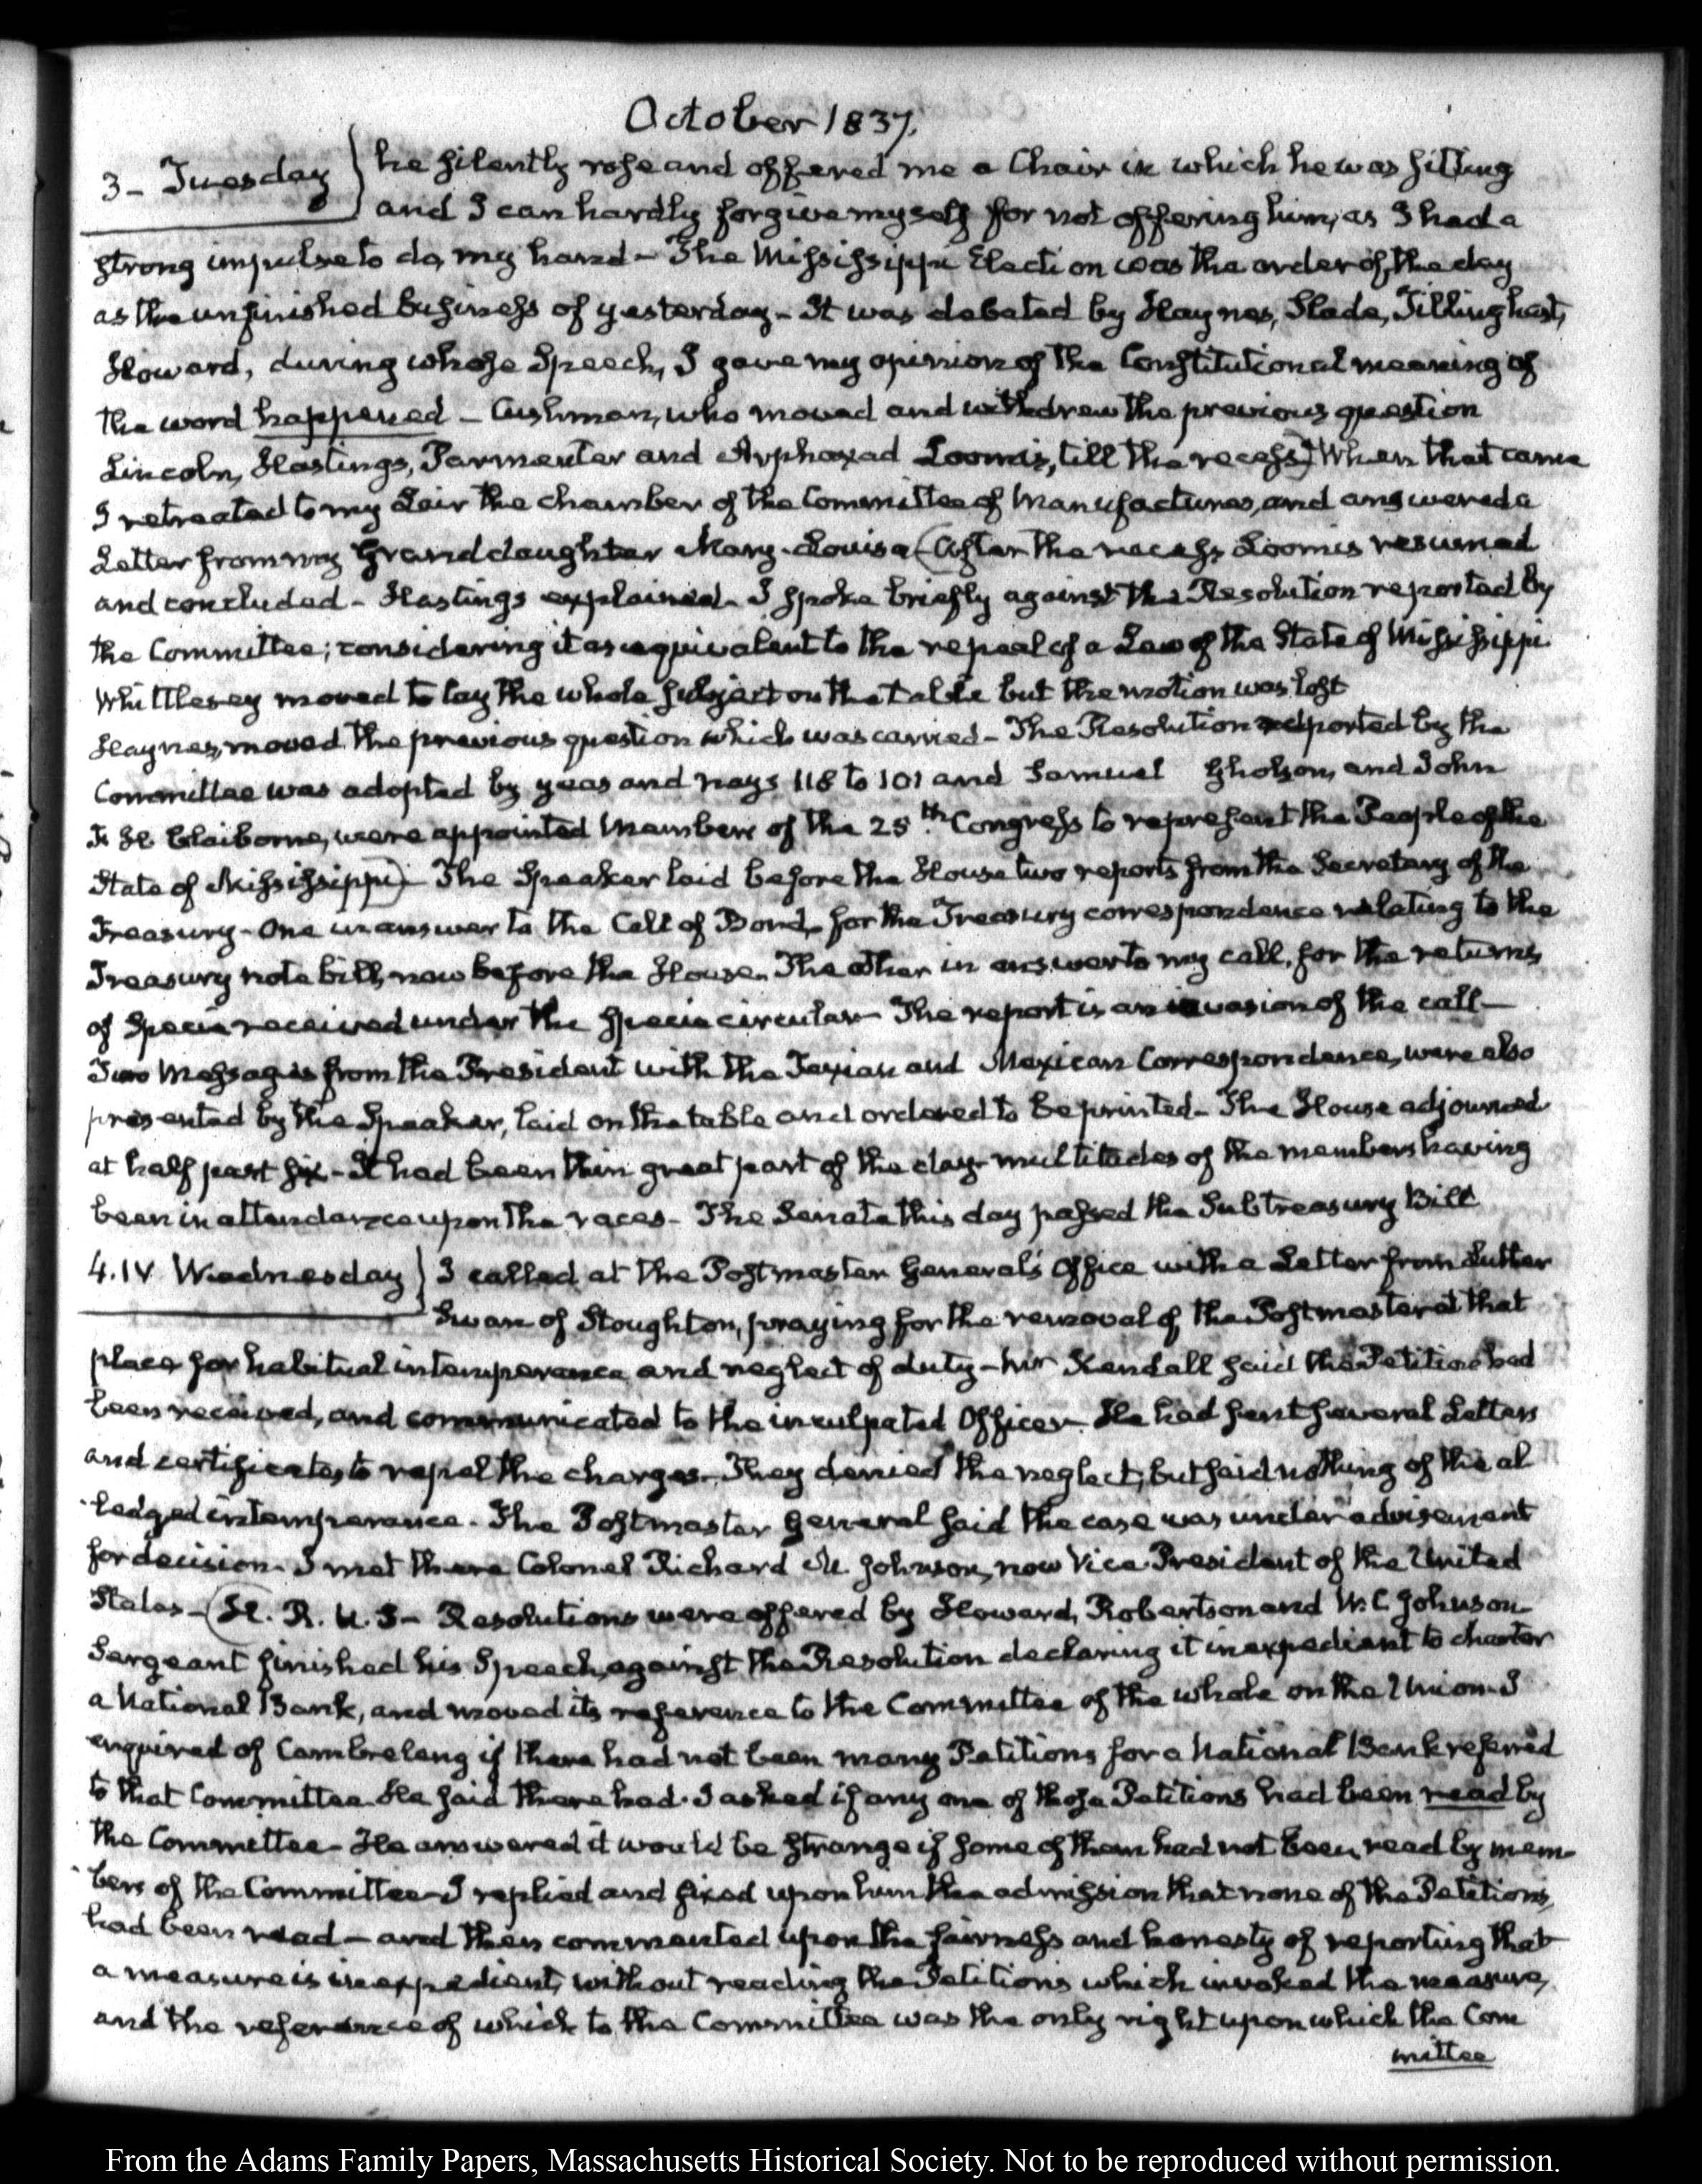 October 1837.
3 - Tuesday } he silently rose and offered me a Chair in which he was sitting
and I can hardly forgive myself for not offering him, as I had a
strong impulse to do, my hand - The Mississippi Election was the order of the day
as the unfinished business of yesterday - It was debated by Haynes, Slade, Tillinghast,
Howard, during whose Speech, I gave my opinion of the Constitutional meaning of
the word happened - Cushman, who moved and withdrew the previous question
Lincoln, Hastings, Parmenter and Arphaxad Loomis, till the recess) When that came
I retreated to my Lair the chamber of the Committee of Manufactures, and answered a
Letter from my Granddaughter Mary-Louisa (After the recess Loomis resumed
and concluded - Hastings explained - I spoke briefly against the Resolution reported by
the Committee; considering it as equivalent to the repeal of a Law of the State of Mississippi
Whittlesey moved to lay the whole subject on the table but the motion was lost
Haynes, moved the previous question which was carried - The Resolution reported by the
Committee was adopted by yeas and nays 118 to 101 and Samuel Gholson, and John
F. H. Claiborne, were appointed Members of the 25th. Congress to represent the People of the
State of Mississippi) - The Speaker laid before the House two reports from the Secretary of the
Treasury - One in answer to the Call of Bond, for the Treasury correspondence relating to the
Treasury note bill, now before the House. The other in answer to my call, for the returns
of Specie received under the Specie circular - The report is an evasion of the call -
Two Messages from the President with the Texian and Mexican Correspondence, were also
presented by the Speaker, laid on the table and ordered to be printed - The House adjourned
at half past six - It had been thin great part of the day - multitudes of the members having
been in attendance upon the races - The Senate this day passed the Subtreasury Bill
4. IV Wednesday } I called at the Postmaster General's Office with a Letter from Luther
Swan of Stoughton, praying for the removal of the Postmaster at that
place for habitual intemperance and neglect of duty - Mr Kendall said the Petition had
been received, and communicated to the inculpated Officer. He had sent several Letters
and certificates, to repel the charges. They denied the neglect, but said nothing of the al
ledged intemperance. The Postmaster General said the case was under advisement
for decision. I met there Colonel Richard M. Johnson, now Vice-President of the United
States - (H. R. U. S - Resolutions were offered by Howard, Robertson and W. C. Johnson -
Sergeant finished his Speech, against the Resolution declaring it inexpedient to charter
a National Bank, and moved its reference to the Committee of the whole on the Union - I
enquired of Cambreleng if there had not been many Petitions for a National Bank referred
to that Committee. He said there had. I asked if any one of those Petitions had been read by
the Committee - He answered it would be strange if some of them had not been read by mem-
bers of the Committee - I replied and fixed upon him the admission that none of the Petitions,
had been read - and then commented upon the fairness and honesty of reporting that
a measure is inexpedient, without reading the Petitions which invoked the measure,
and the reference of which to the Committee was the only right upon which the Com
mittee
From the Adams Family Papers, Massachusetts Historical Society. Not to be reproduced without permission.